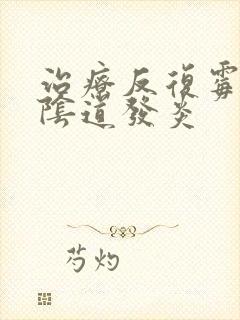 治療反復霉
陰道發炎
芍灼